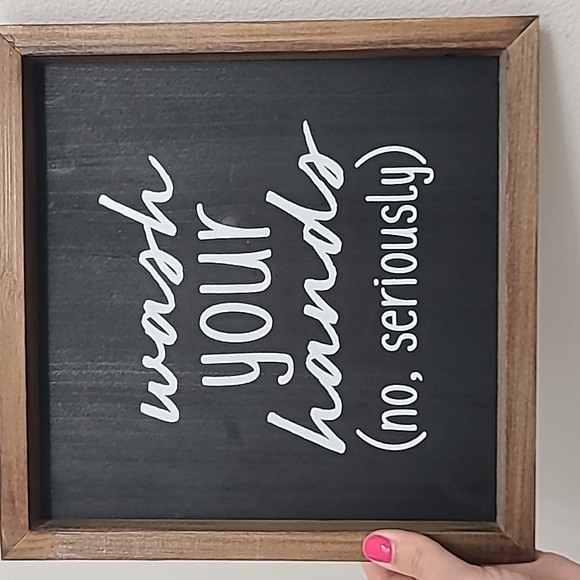 wash
your
hands
(no, seriously)